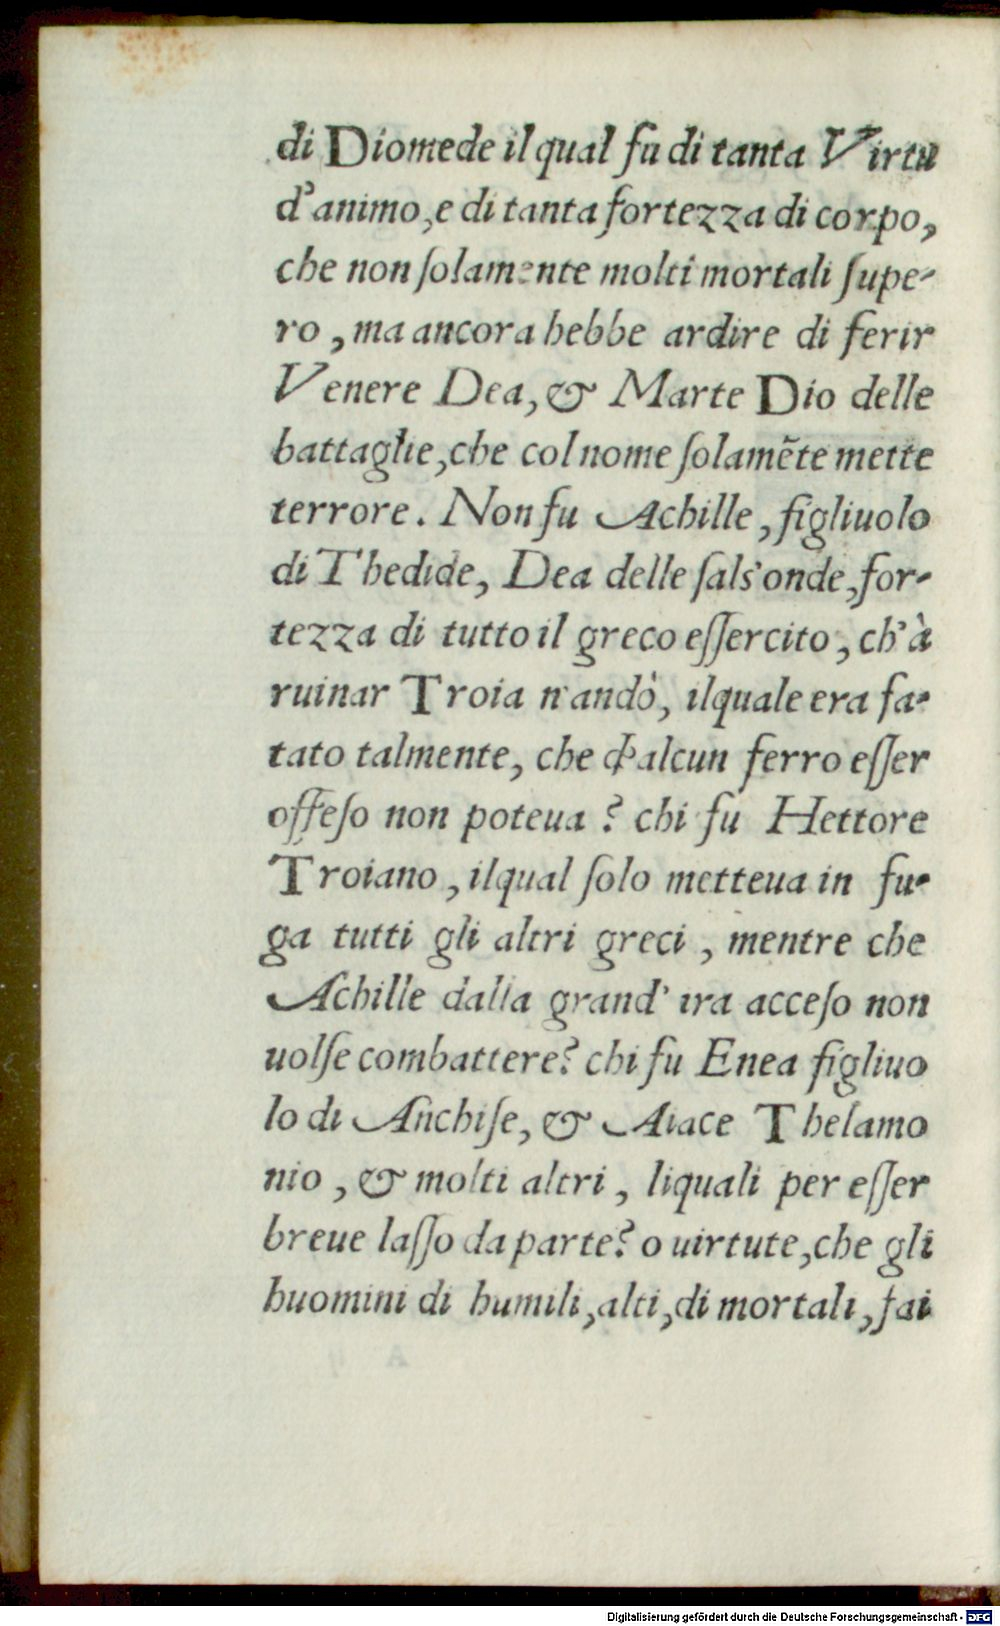 di Diomede il qual fu di tanta Virtu
d'animo, e di tanta fortezza di corpo,
che non ſolamente molti mortali ſupe-
ro, ma ancora hebbe ardire di ferir
Venere Dea, & Marte Dio delle
battaglie, che col nome ſolamẽte mette
terrore. Non fu Achille, figliuolo
di Thedide, Dea delle ſals'onde, for-
tezza di tutto il greco eſſercito, ch'à
ruinar Troia n'andò, ilquale era fa-
tato talmente, che d'alcun ferro eſſer
offeſo non poteua? chi fu Hettore
Troiano, ilqual ſolo metteua in fu-
ga tutti gli altri greci, mentre che
Achille dalla grand' ira acceſo non
uolſe combattere? chi fu Enea figliuo
lo di Anchiſe, & Aiace Thelamo
nio, & molti altri, liquali per eſſer
breue laſſo da parte? o uirtute, che gli
huomini di humili, alti, di mortali, fai
Digitalisierung gefördert durch die Deutsche Forschungsgemeinschaft - DFG